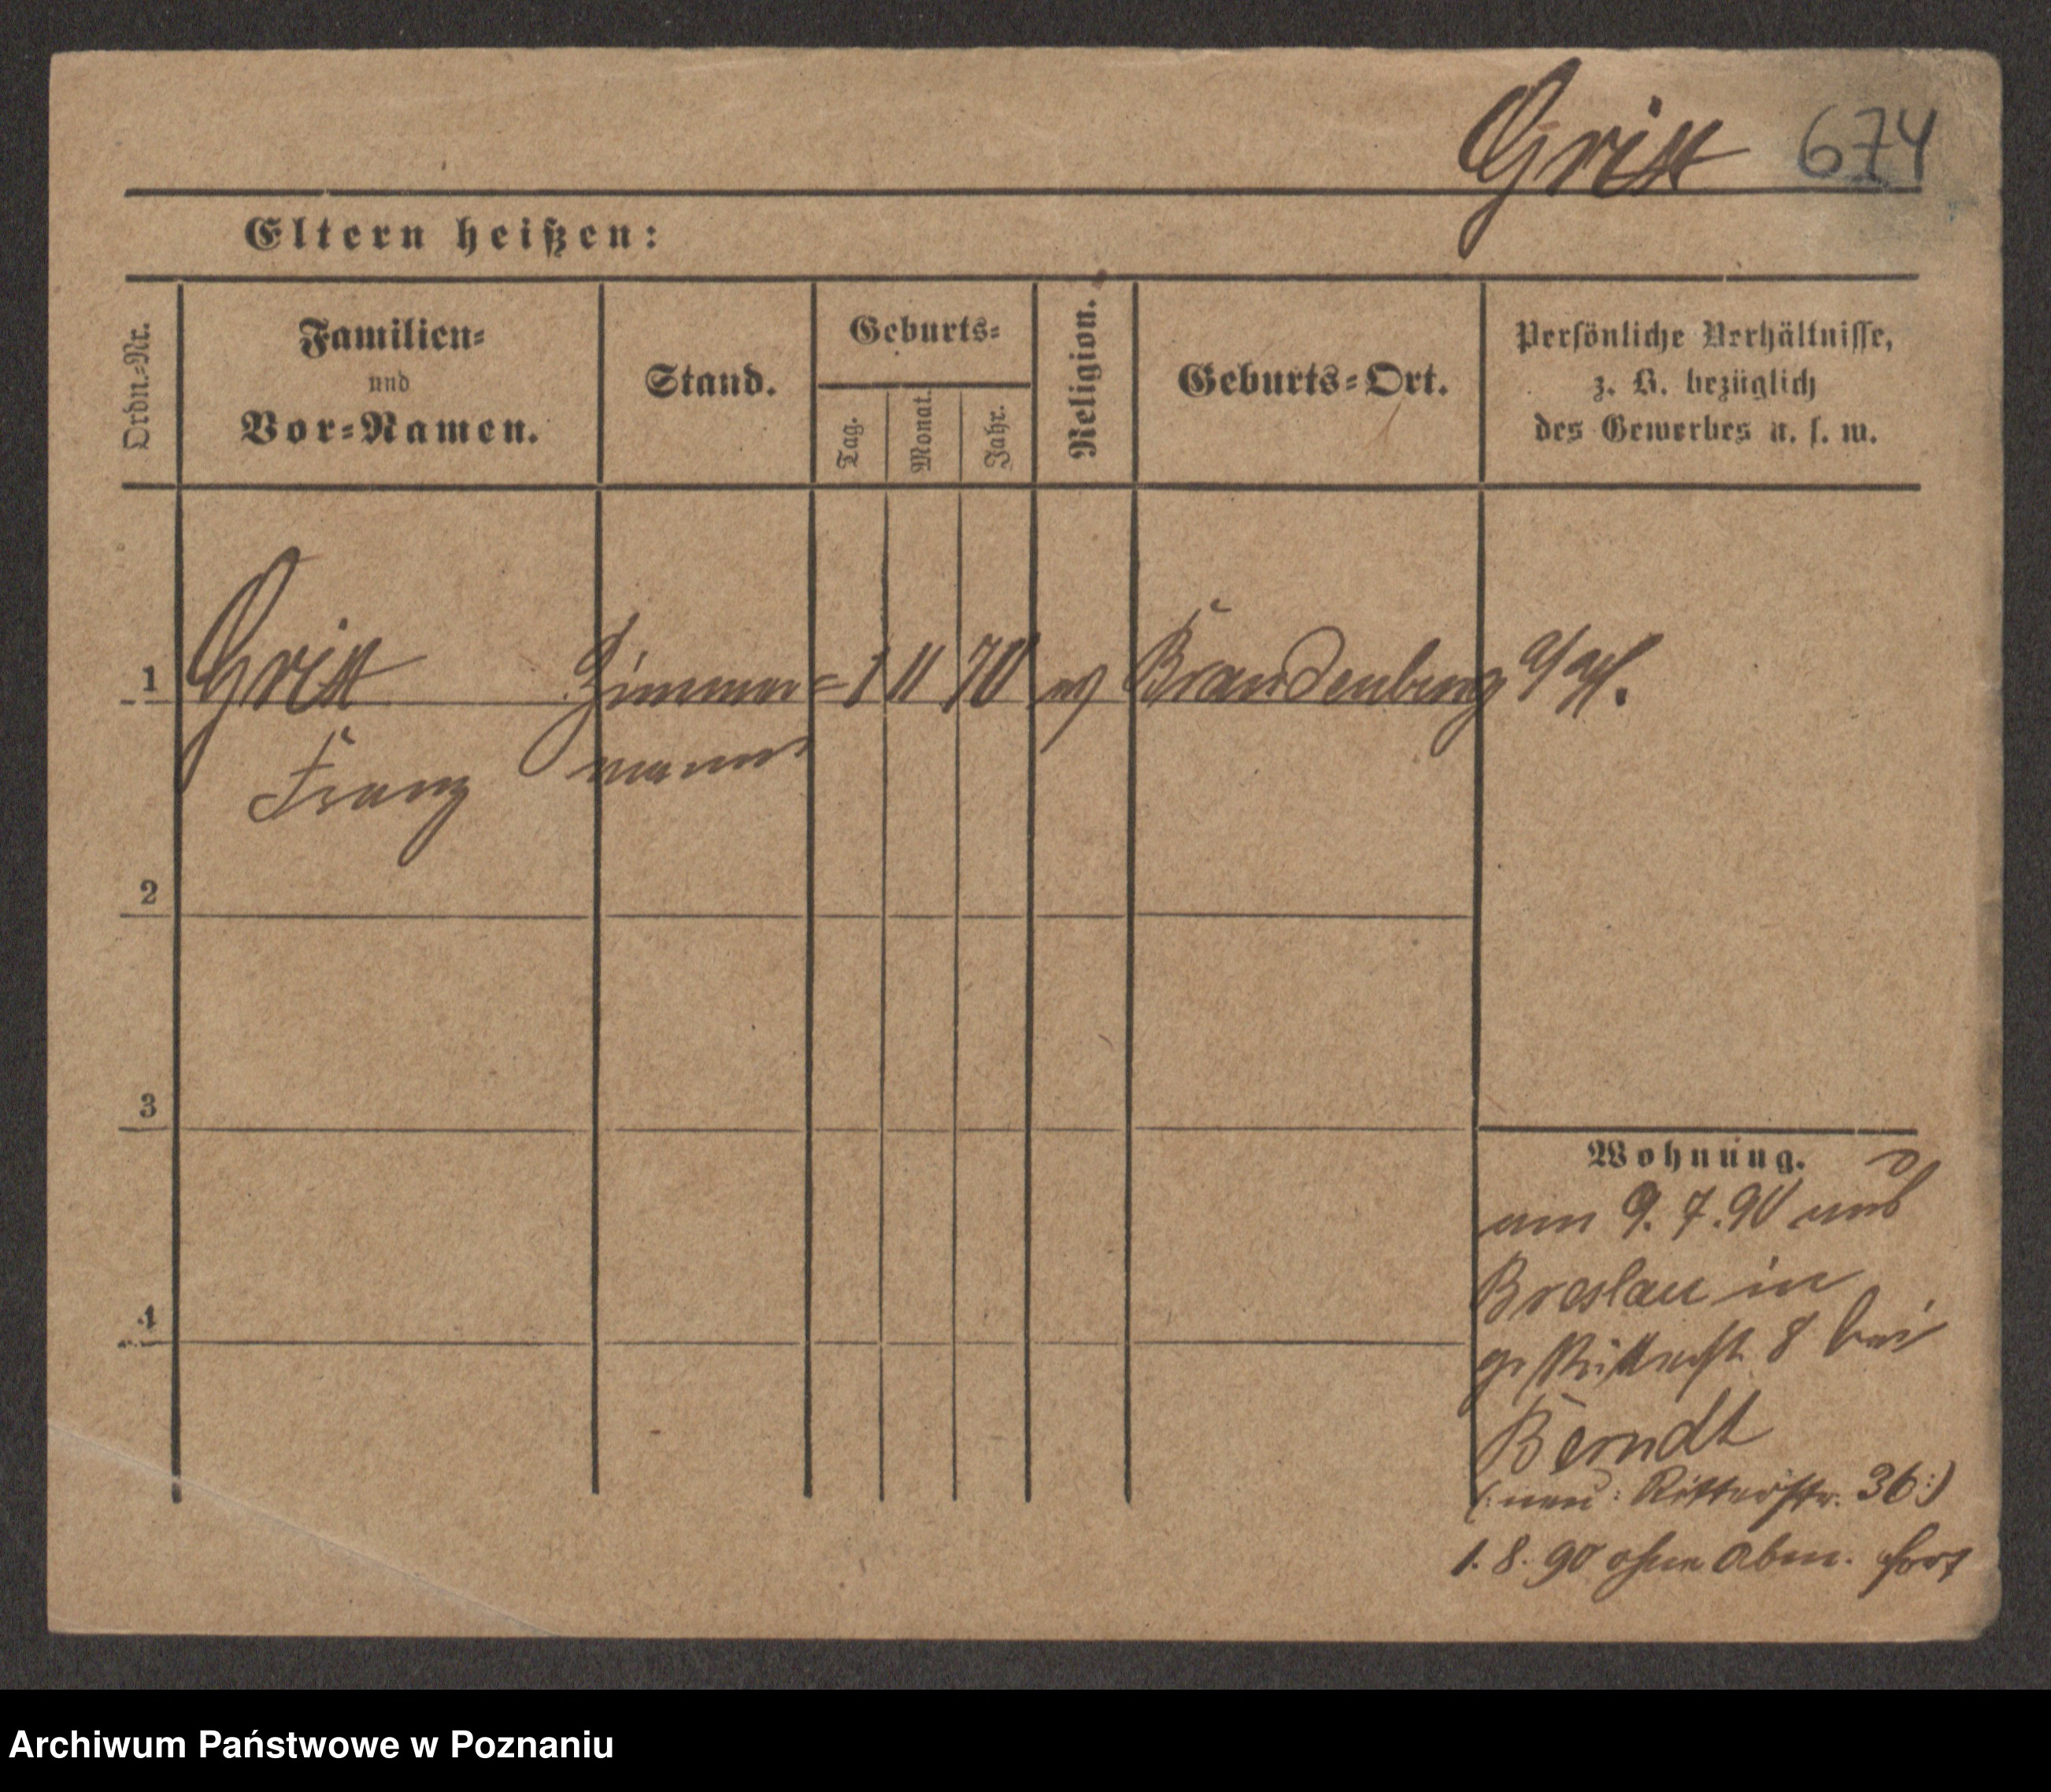 Gritt 674
Eltern heißen:
Ordn.=Nr.
Familien=
und
Vor=Namen.
Stand.
Geburts=
Tag.
Monat.
Jahr.
Religion.
Geburts=Ort.
Persönliche Verhältnisse,
z. B. bezüglich
des Gewerbes u. s. w.
1 Gritt Zimmer= 1 11 70 Brandenburg a/H.
Franz mann
2
3
4
Wohnung.
am 9. 7. 90 aus
Breslau in
gr Ritterst. 8 bei
Berndt
(: neu: Ritterstr. 36 :)
1. 8. 90 ohne Abm. fort
Archiwum Państwowe w Poznaniu